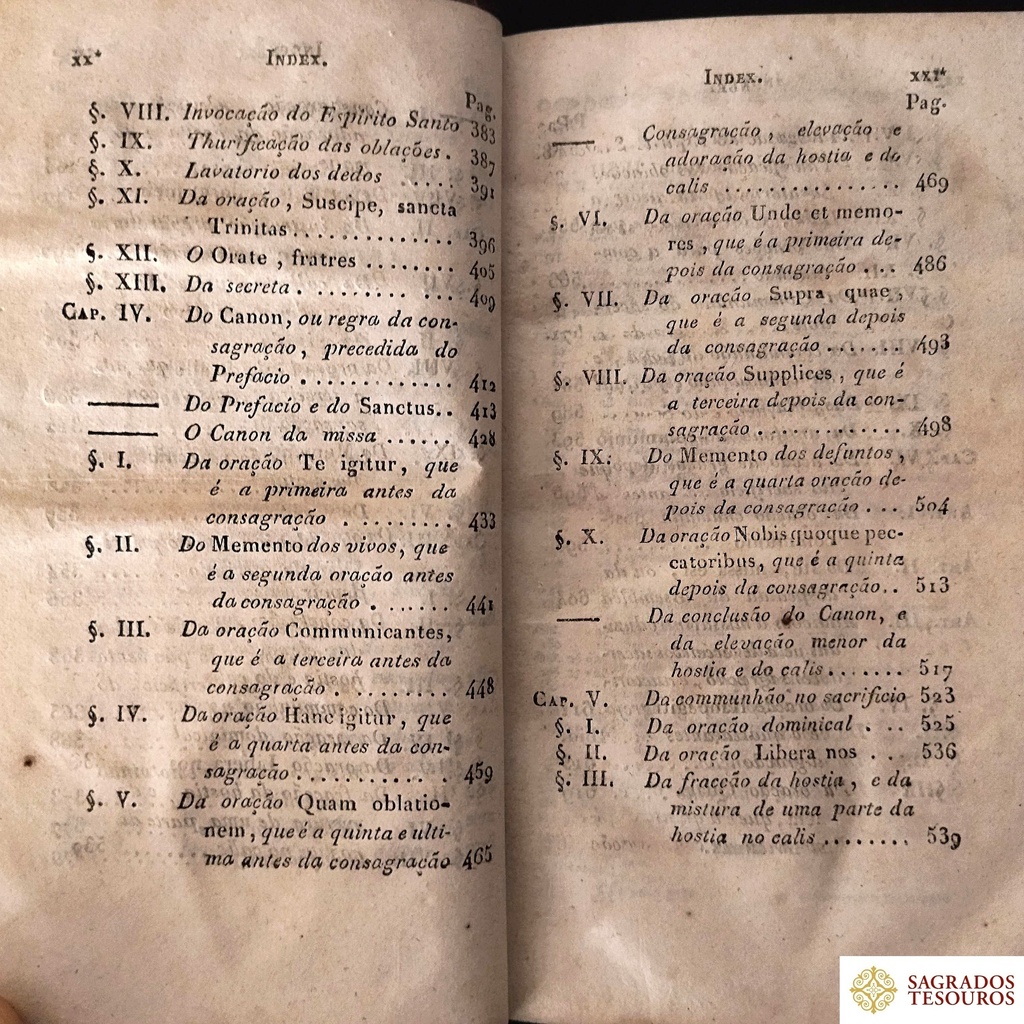 xx*
INDEX.
Pag.
§. VIII. Invocação do Espirito Santo 383
§. IX. Thurificação das oblações. 387
§. X. Lavatorio dos dedos .... 391
§. XI. Da oração, Suscipe, sancta
Trinitas............. 396
§. XII. O Orate, fratres ........ 405
§. XIII. Da secreta. ........ ... 409
CAP. IV. Do Canon, ou regra da con-
sagração, precedida do
Prefacio ............ 412
—— Do Prefacio e do Sanctus.. 413
—— O Canon da missa ...... 428
§. I. Da oração Te igitur, que
é a primeira antes da
consagração . ........ 433
§. II. Do Memento dos vivos, que
é a segunda oração antes
da consagração . ...... 441
§. III. Da oração Communicantes,
que é a terceira antes da
consagração . ........ 448
§. IV. Da oração Hanc igitur, que
é a quarta antes da con-
sagração ............ 459
§. V. Da oração Quam oblatio-
nem, que é a quinta e ulti-
ma antes da consagração 465
INDEX.
xxi*
Pag.
—— Consagração, elevação e
adoração da hostia e do
calis ................ 469
§. VI. Da oração Unde et memo-
res, que é a primeira de-
pois da consagração ... 486
§. VII. Da oração Supra quae,
que é a segunda depois
da consagração ....... 493
§. VIII. Da oração Supplices, que é
a terceira depois da con-
sagração ............. 498
§. IX. Do Memento dos defuntos,
que é a quarta oração de-
pois da consagração ... 504
§. X. Da oração Nobis quoque pec-
catoribus, que é a quinta
depois da consagração.. 513
—— Da conclusão do Canon, e
da elevação menor da
hostia e do calis....... 517
CAP. V. Da communhão no sacrificio 523
§. I. Da oração dominical . .. 525
§. II. Da oração Libera nos . .. 536
§. III. Da fracção da hostia, e da
mistura de uma parte da
hostia no calis ........ 539
SAGRADOS
TESOUROS